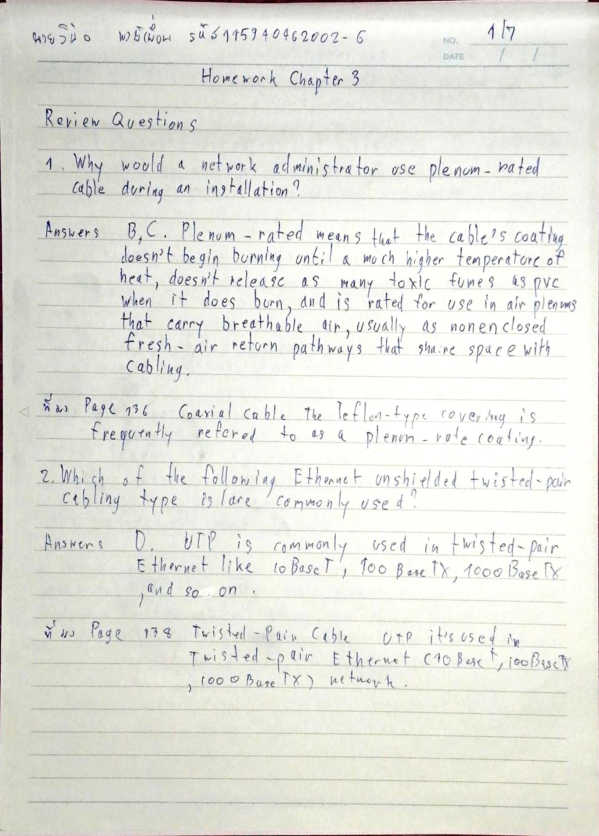 นายวินัด พาชีเผื่อน รหัส 115940462002-6
NO. 1/7
DATE / /
Homework Chapter 3
Review Questions
1. Why would a network administrator use plenum-rated
cable during an installation?
Answers B,C. Plenum-rated means that the cable's coating
doesn't begin burning until a much higher temperature of
heat, doesn't release as many toxic fumes as pvc
when it does burn, and is rated for use in air plenums
that carry breathable air, usually as nonenclosed
fresh-air return pathways that share space with
cabling.
ที่มา Page 136 Coaxial Cable The Teflon-type covering is
frequently refered to as a plenum-rate coating.
2. Which of the following Ethernet unshielded twisted-pair
cabling type is/are commonly used?
Answers D. UTP is commonly used in twisted-pair
Ethernet like 10BaseT, 100BaseTX, 1000BaseTX
,and so on.
ที่มา Page 138 Twisted-Pair Cable UTP it's used in
Twisted-pair Ethernet (10BaseT, 100BaseTX
, 1000BaseTX) network.